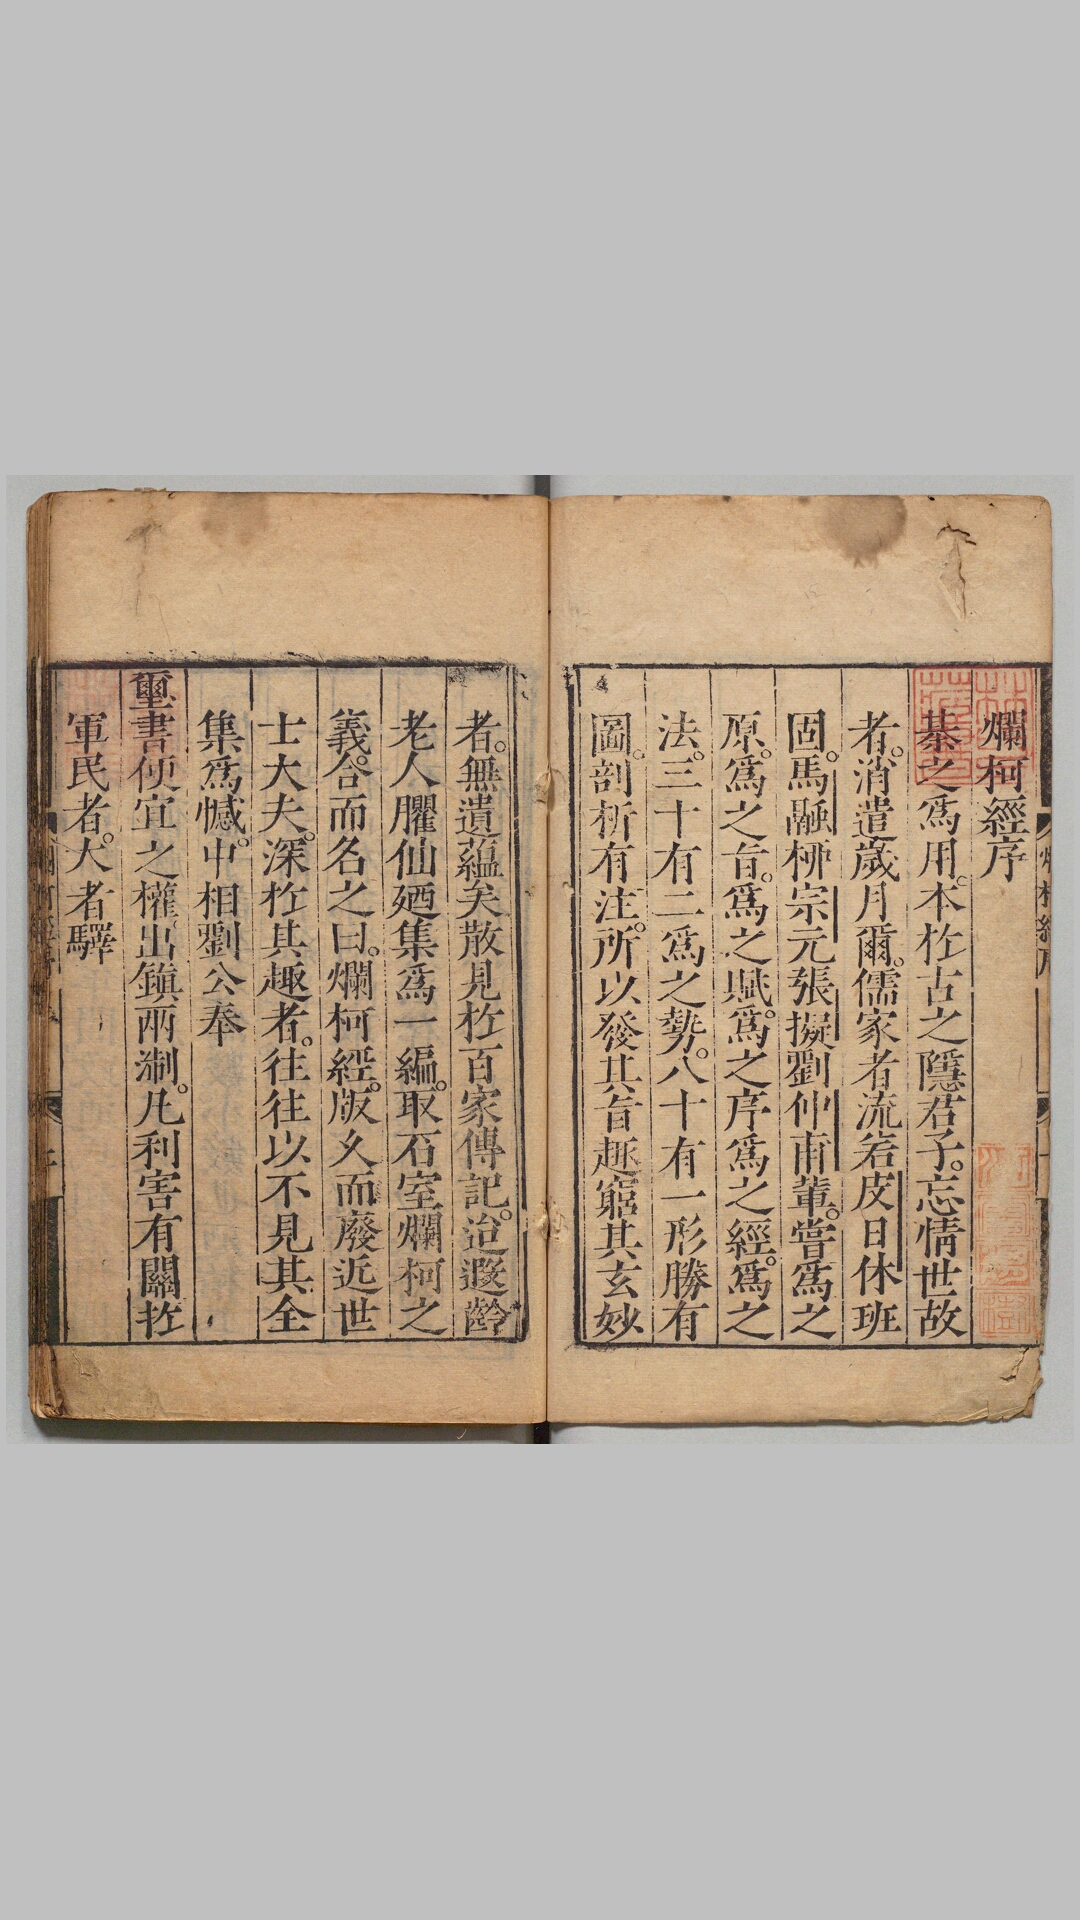 爛柯經序
棊之爲用。本扵古之隱君子。忘情世故
者。消遣歲月爾。儒家者流若皮日休班
固。馬融栁宗元張擬劉仲甫輩。嘗爲之
原。爲之旨。爲之賦。爲之序爲之經。爲之
法。三十有二爲之勢。八十有一形勝有
圖。剖析有注。所以發其旨趣窮其玄妙
者。無遺蘊矣散見扵百家傳記。迨遐齡
老人臞仙廼集爲一編。取石室爛柯之
義。合而名之曰。爛柯經。版久而廢近世
士大夫。深扵其趣者。往往以不見其全
集爲憾。中相劉公奉
璽書便宜之權。出鎮兩淛。凡利害有關扵
軍民者。大者驛